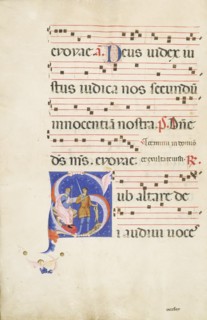 euouae. a. Deus iudex iu
stus iudica nos secundū
innocentiā nostrā. ps. Dñe
ds̄ ms̄. euouae.
R.
Sub altare dei
audiui uoce